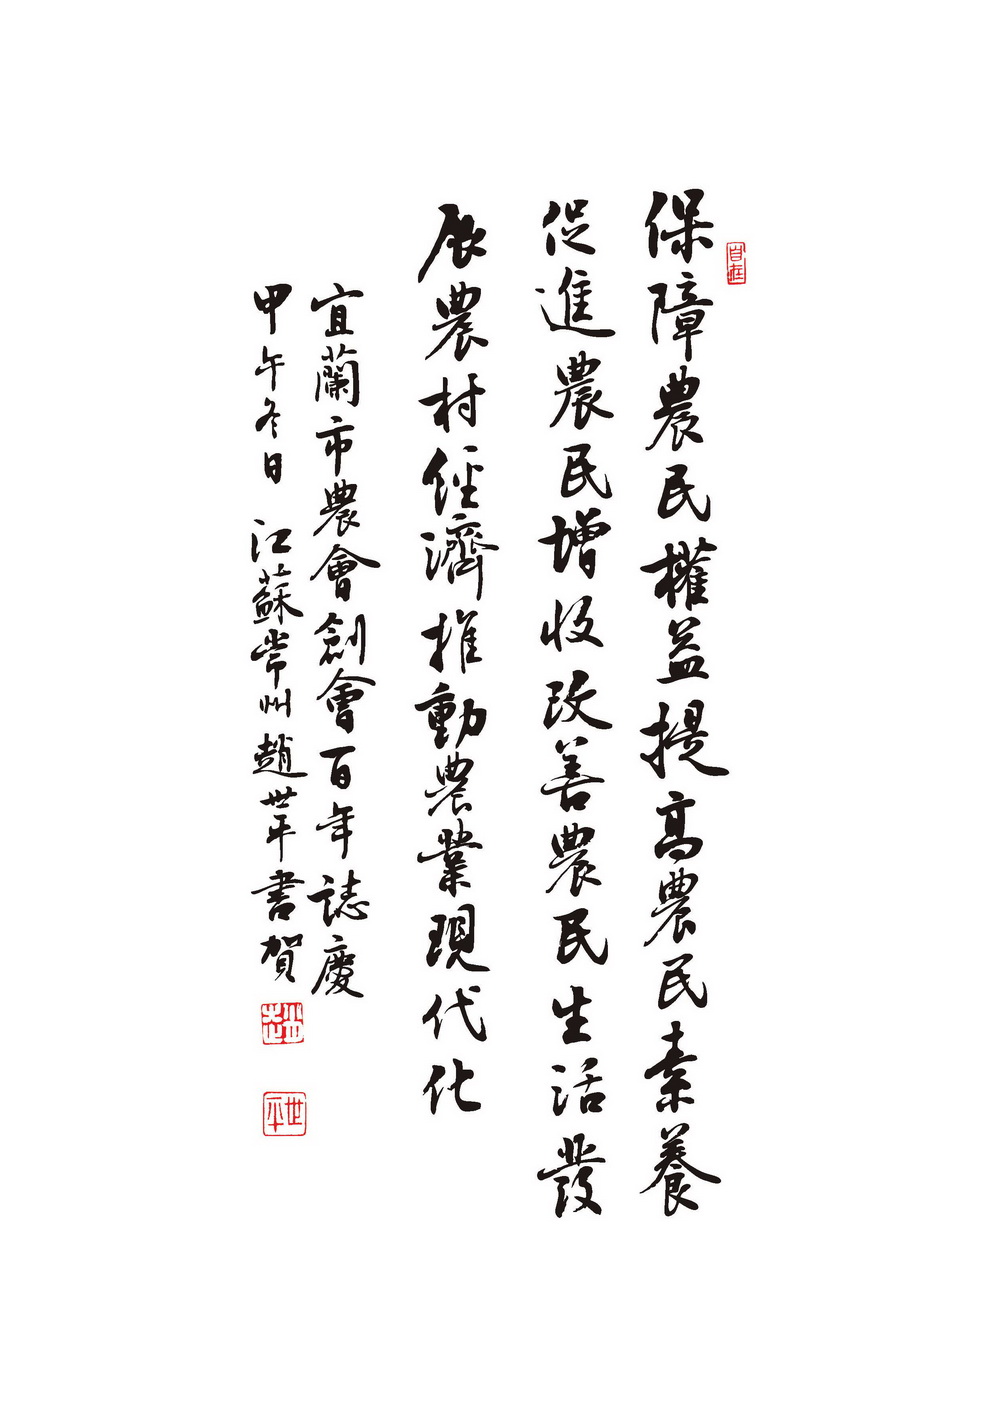 保障農民權益提高農民素養
促進農民增收改善農民生活發
展農村經濟推動農業現代化
宜蘭市農會創會百年誌慶
甲午冬日 江蘇常州趙世平書賀
世平